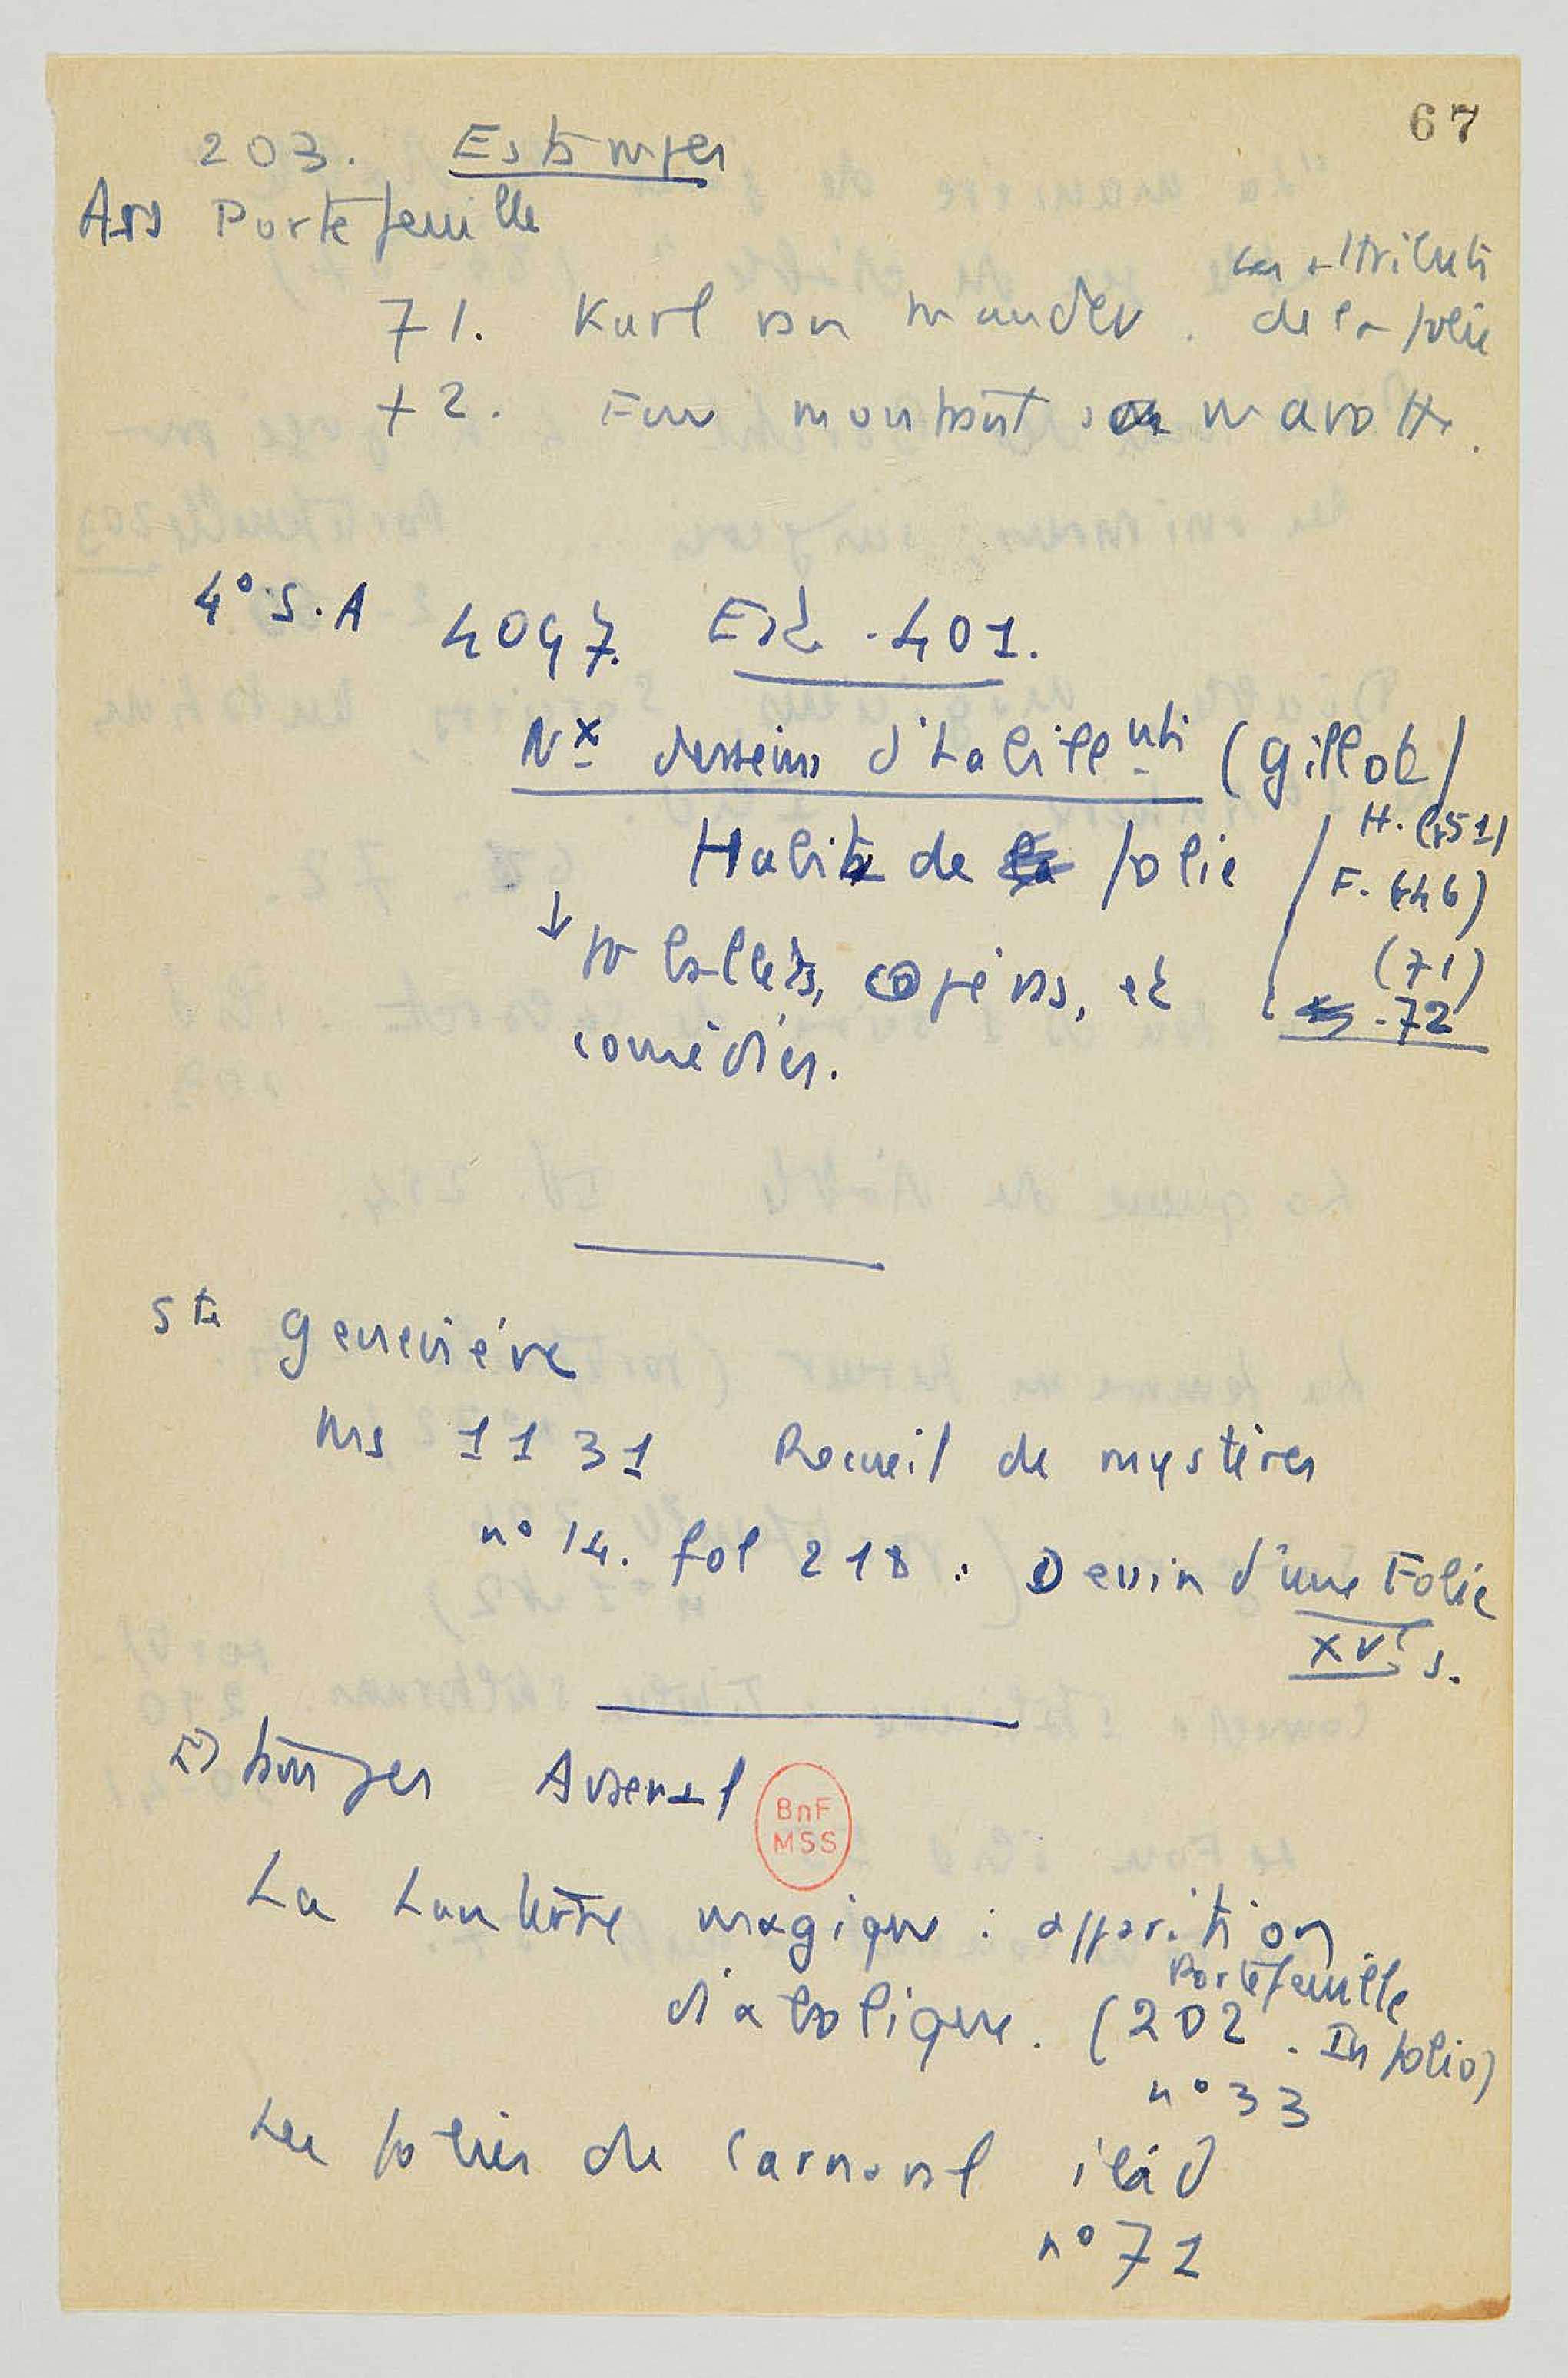 67
203. Estampes
Ars Portefeuille
71. Karl von Mander. Les attributs de la folie
72. Fou montrant sa marotte.
4° S.A 4097. Est. 401.
Nx desseins d'habillemts (Gillot)
Habits de folie
H. (51)
F. (46)
(71)
72
↓ pr ballets, opéras, et
comédies.
Ste Geneviève
Ms 1131 Recueil de mystères
n° 14. fol 218 : Devin d'une Folie
XVe s.
Estampes Arsenal
BnF
MSS
La Lanterne magique : apparition
diabolique. (Portefeuille 202. In folio)
n° 33
Les folies de Carnaval ibid
n° 71